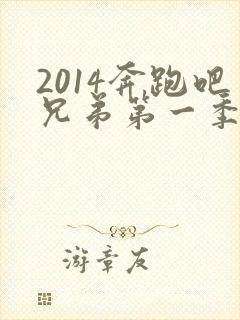 2014奔跑吧
兄弟第一季
游章友